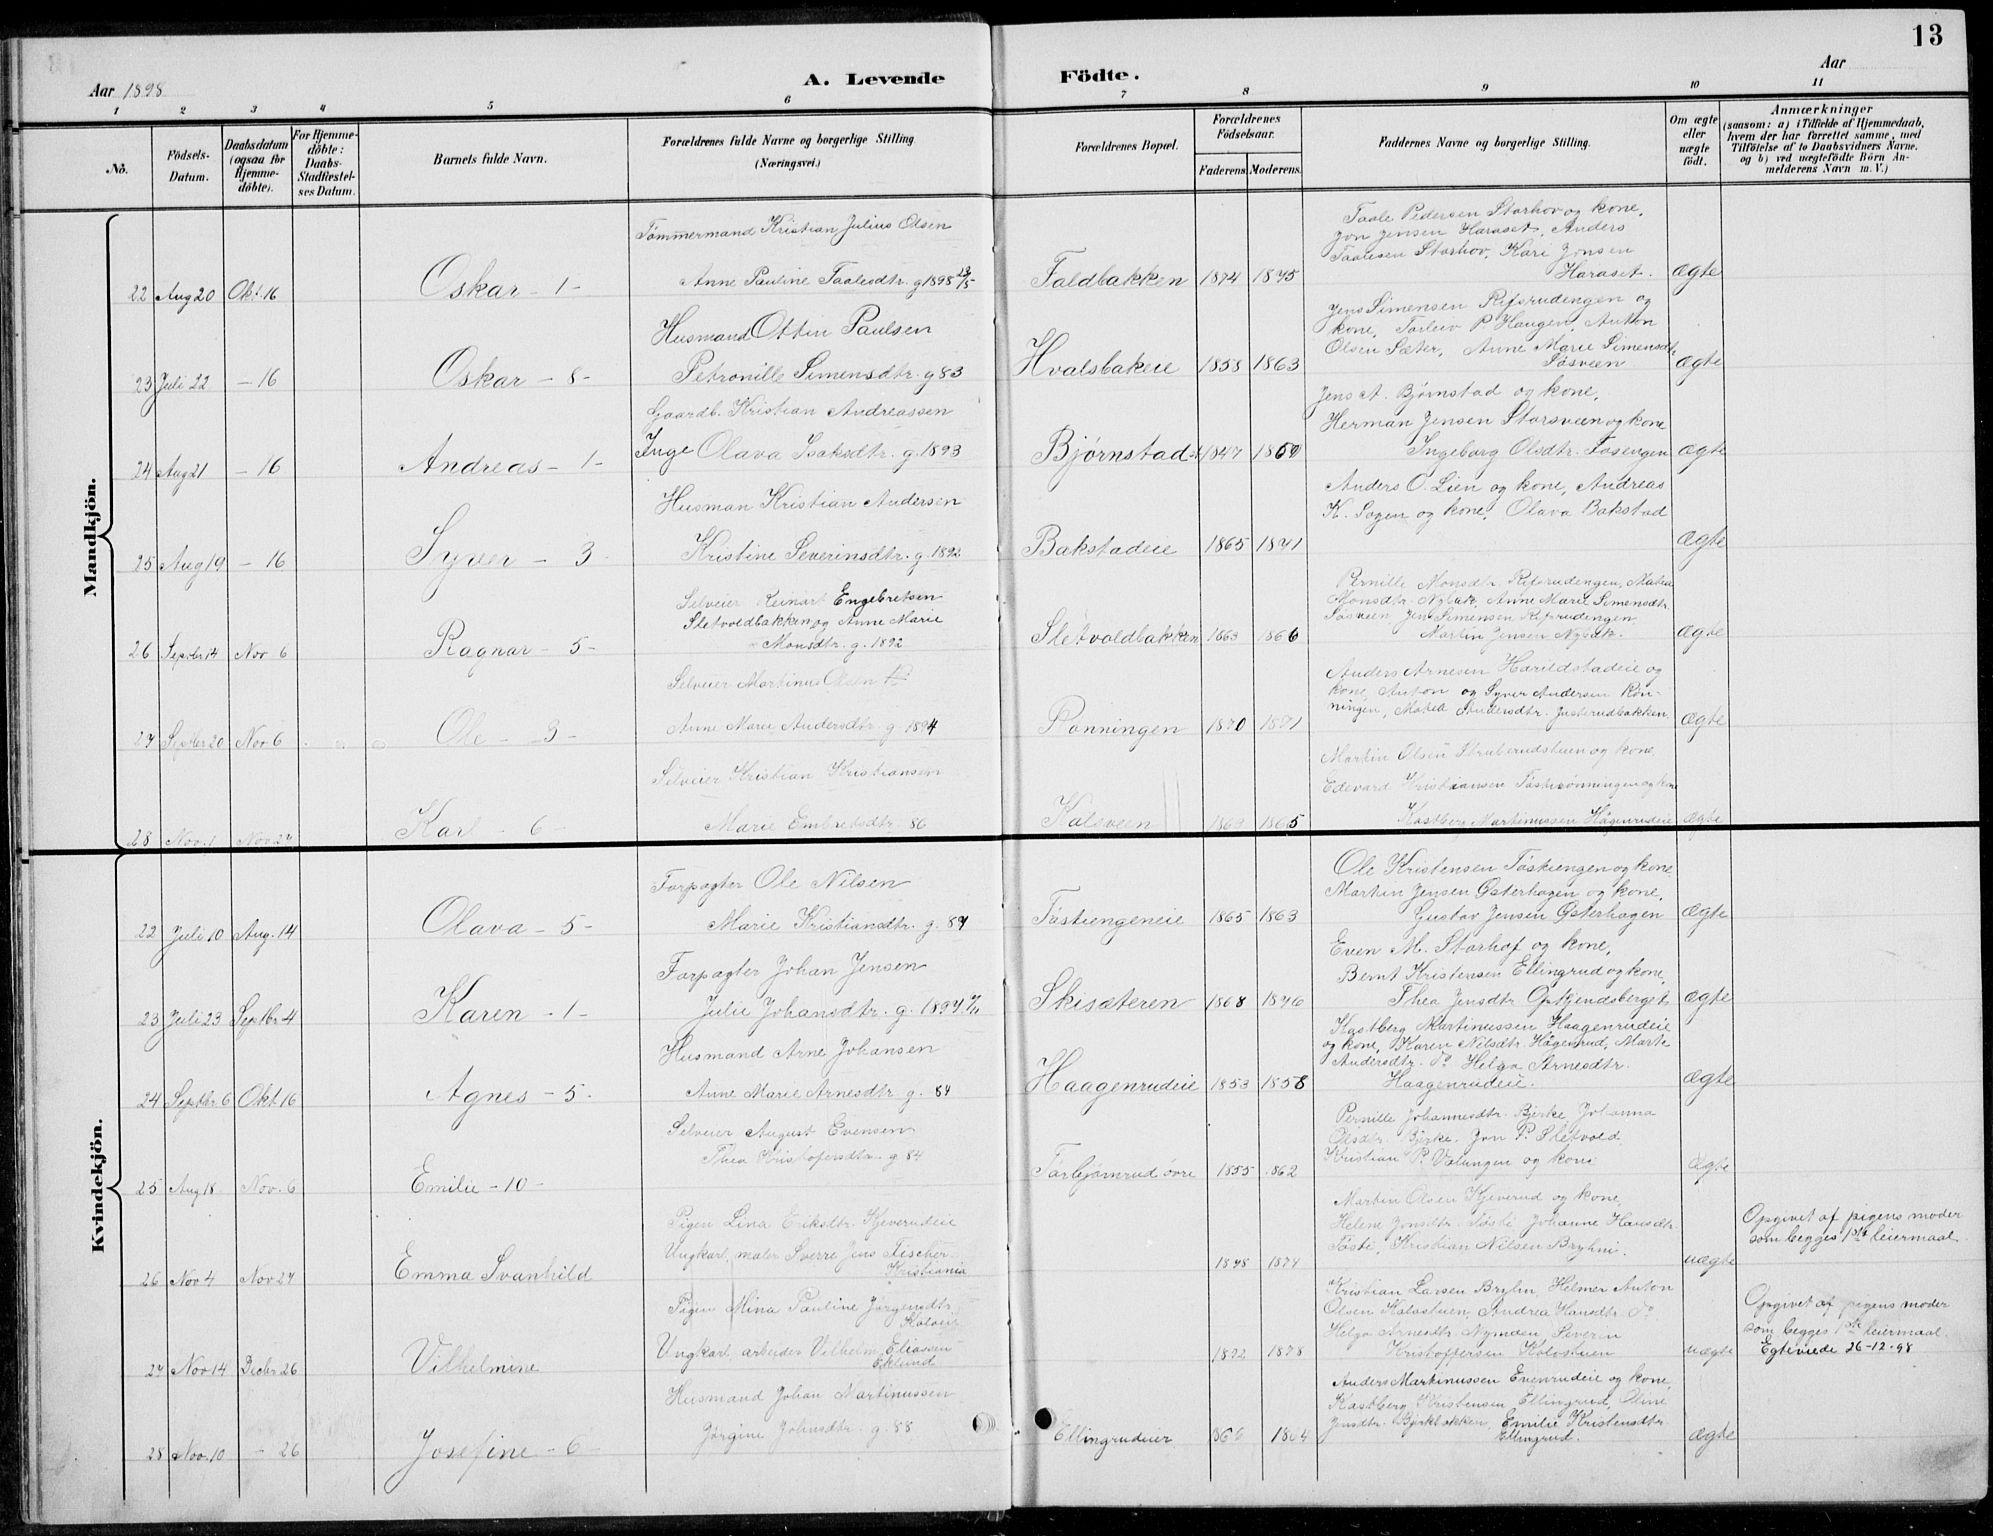 13
Aar 1898
A. Levende Födte.
Aar
1 2 3 4 5 6 7 8 9 10 11
No.
Födsels-Datum.
Daabsdatum (ogsaa for Hjemme-döbte).
For Hjemme-döbte: Daabs-Stadfæstel-ses Datum.
Barnets fulde Navn.
Forældrenes fulde Navne og borgerlige Stilling (Næringsvei.)
Forældrenes Bopæl.
Forældrenes Födselsaar.
Faderens. Moderens.
Faddernes Navne og borgerlige Stilling.
Om ægte eller uægte födt.
Anmærkninger
(saasom: a) i Tilfælde af Hjemmedaab, hvem der har forrettet samme, med Tilföielse af to Daabsvidners Navne, og b) ved uægtefödte Börn An-melderens Navn m. V.)
Mandkjön.
22 Aug 20 Okt. 16 Oskar - 1 -
Tömmermand Kristian Julius Olsen
Anne Pauline Taalesdtr. g 1898
Faldbakken 1874 1875
Taale Pedersen Storhov og kone,
Jon Jensen Haraset, Anders
Taalesen Storhov, Kari Jonsen
Haraset. Ægte
23 Juli 22 - 16 Oskar - 8 -
Husmand Ottin Paulsen
Petronille Simensdtr. g 83
Hvalsbakeie 1858 1863
Jens Simensen Rifsrudengen og
kone, Torleiv P. Haugen, Anton
Olsen Sæter, Anne Marie Simensdtr.
Søsveen Ægte
24 Aug 21 - 16 Andreas - 1 -
Gaardb. Kristian Andreassen
Inge Olava Isaksdtr. g. 1893
Bjørnstad 1847 1859
Jens A. Bjørnstad og kone,
Herman Jensen Storsveen og kone
Ingeborg Olsdtr. Fosengen Ægte
25 Aug 19 - 16 Syver - 3 -
Husman Kristian Andersen
Kristine Severinsdtr. g. 1892
Bakstadeie 1865 1871
Anders O. Lien og kone, Andreas
K. Sogen og kone, Olava Bakstad
Ægte
26 Septbr 14 Nov 6 Ragnar - 5 -
Selveier Reinart Engebretsen
Sletvoldbakken og Anne Marie
Monsdtr. g. 1892
Sletvoldbakken 1863 1866
Pernille Monsdtr. Rifsrudengen, Mathea
Monsdtr. Nybak, Anne Marie Simensdtr.
Søsveen, Jens Simensen Rifsrudengen,
Martin Jensen Nybak. Ægte
27 Septbr 20 Nov 6 Ole - 3 -
Selveier Martinus Olsen
Anne Marie Andersdtr g 1894
Rønningen 1870 1871
Anders Arnesen Harildstadeie og
kone, Anton og Syver Andersen Røn-
ningen, Mathea Andersdtr. Justerudbakken. Ægte
28 Nov. 1 Nov 27 Karl - 6 -
Selveier Kristian Kristiansen
Marie Embretsdtr. 86
Kalsveen 1865
Martin Olsen Struberudstuen og kone,
Edevard Kristiansen Tøsterønningen og kone
Kastberg Martinussen Hågenrudeie Ægte
Kvindekjön.
22 Juli 10 Aug. 14 Olava - 5 -
Forpagter Ole Nilsen
Marie Kristiansdtr. g. 87
Tøstiengeneie 1865 1863
Ole Kristensen Tøstiengen og kone
Martin Jensen Østerhagen og kone,
Gustav Jensen Østerhagen Ægte
23 Juli 23 Septbr 4 Karen - 1 -
Forpagter Johan Jensen
Julie Johansdtr. g. 1897
Skisæteren 1868 1876
Even M. Storhof og kone,
Bernt Kristensen Ellingrud og kone,
Thea Jensdtr. Gokjendsberget Ægte
24 Septbr 6 Okt 16 Agnes - 5 -
Husmand Arne Johansen
Anne Marie Arnesdtr g. 84
Haagenrudeie 1853 1858
Kastberg Martinussen Haagenrudeie
og kone, Karen Nilsdtr. Hågenrud, Marte
Andersdtr. do Helga Arnesdtr.
Haagenrudeie. Ægte
25 Aug 18 Nov. 6 Emilie - 10 -
Selveier August Evensen
Thea Kristofersdtr. g 84
Torbjørnrud øvre 1855 1862
Pernille Johannesdtr. Bjerke, Johanna
Olsdtr. Bjerke, Jon P. Sletvold
Kristian P. Volungen og kone Ægte
26 Nov 4 Nov 27 Emma Svanhild
Pigen Lina Eriksdtr. Kjeverudeie
Ungkarl, maler Sverre Jens Fischer
Kristiania
1878 1874
Martin Olsen Kjeverud og kone
Helene Jonsdtr. Tøsti, Johanne Hansdtr.
Tøsti, Kristian Nilsen Bryhni. uægte
Opgivet af pigens moder
som begges 1ste leiermaal.
27 Nov 14 Decbr 26 Vilhelmine
Pigen Mina Pauline Jørgensdtr.
Ungkarl arbeider Vilhelm Eliassen
Eklund
1872 1878
Kristian Larsen Bryhn, Helmer Anton
Olsen Kolostuen, Andrea Hansdtr. do
Helga Arnesdtr. Nymoen, Severin
Kristoffersen Kolostuen uægte
Opgivet af pigens moder
som begges 1ste leiermaal.
Egteviede 26-12-98
28 Nov. 10 - 26 Josefine - 6 -
Husmand Johan Martinussen
Jørgine Johnsdtr. g. 88
Ellingrudeier 1864
Anders Martinussen Evenrudeie og kone,
Kastberg Kristensen Ellingrud, Oline
Jensdtr. Bjerkbakken, Emilie Kristensdtr.
Ellingrud. Ægte